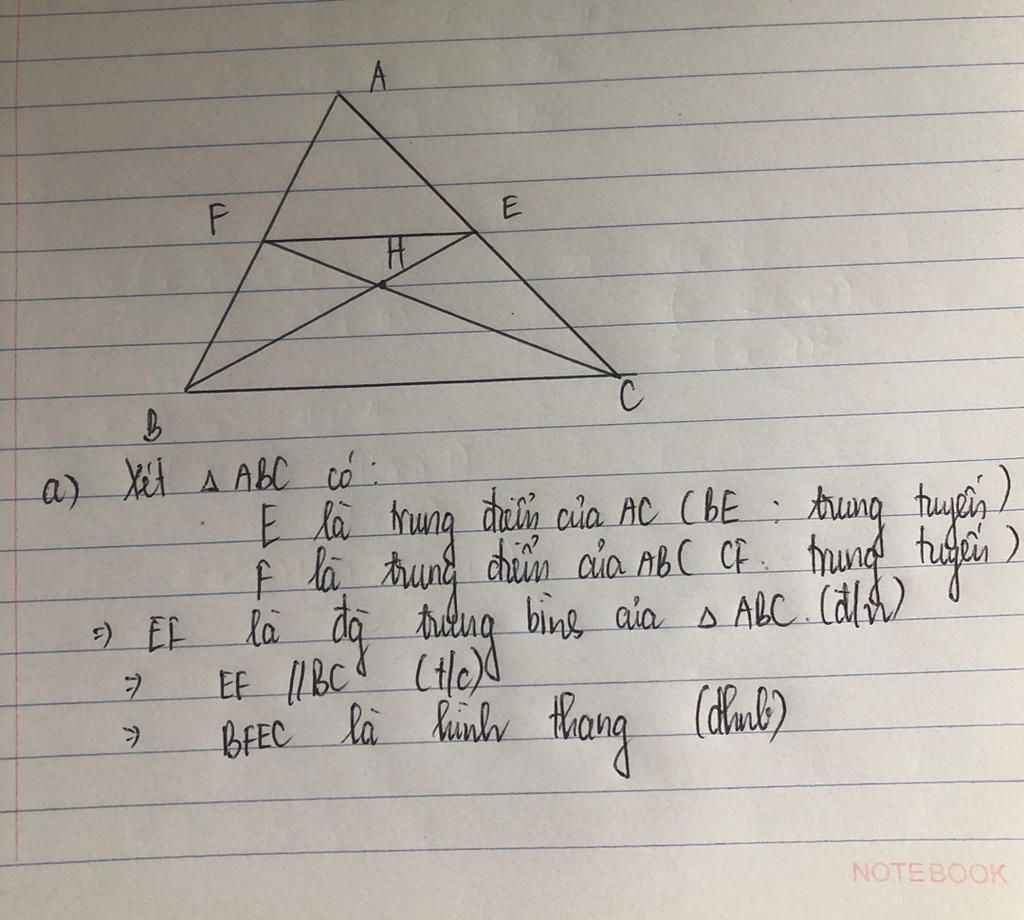 A
F
E
H
B
C
a) Xét △ ABC có:
E là trung điểm của AC (BE : trung tuyến)
F là trung điểm của AB ( CF : trung tuyến)
=) EF là đg trung bình của △ ABC. (đ/n)
=) EF //BC (t/c)
=) BFEC là hình thang (dhnb)
NOTEBOOK